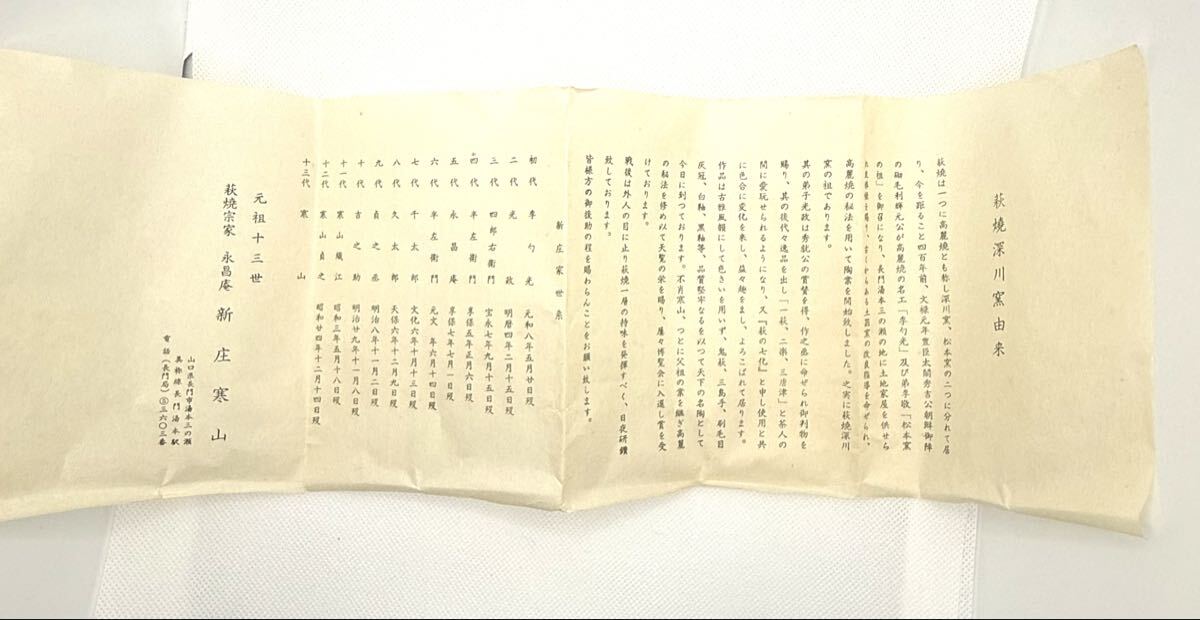 萩焼深川窯由来
萩焼は一つに高麗焼とも称し深川窯、松本窯の二つに分れて居
り、今を距ること四百年前、文禄元年豊臣太閤秀吉公朝鮮御陣
の砌毛利輝元公が高麗焼の名工「李勺光」及び弟李敬「松本窯
の祖」を御召になり、長門湯本三の瀬の地に土地家屋を供せら
高麗焼の秘法を用いて陶業を開始致しました。之実に萩焼深川
窯の祖であります。
其の弟子光政は秀就公の賞賛を得、作之丞に命ぜられ御判物を
賜り、其の後代々逸品を出し「一萩、二楽、三唐津」と茶人の
間に愛玩せられるようになり、又『萩の七化』と申し使用と共
に色合に変化を来し、益々趣をまし、よろこばれて居ります。
作品は古雅風韻にして色さいを用いず、鬼萩、三島手、刷毛目
灰冠、白釉、黒釉等、品質堅牢なるを以つて天下の名陶として
今日に到つております。不肖寒山、つとに父祖の業を継ぎ高麗
の秘法を修め以て天覧の栄を賜り、屡々博覧会に入選し賞を受
けております。
戦後は外人の目に止り萩焼一層の持味を発揮すべく、日夜研鑽
致しております。
皆様方の御後助の程を賜わらんことをお願い致します。
新庄家世系
初代 李勺光 元和八年五月廿日歿
二代 光政 明暦四年二月十五日歿
三代 四郎右衛門 宝永七年九月十五日歿
四代 半左衛門 享保五年正月六日歿
五代 永昌庵 享保七年七月一日歿
六代 半左衛門 元文 年六月十四日歿
七代 千太郎 文化六年十月十三日歿
八代 久太郎 天保六年十二月九日歿
九代 貞之丞 明治八年十一月二日歿
十代 吉之助 明治廿九年十一月八日歿
十一代 寒山織江 昭和三年五月十八日歿
十二代 寒山貞之 昭和廿四年十二月十四日歿
十三代 寒山
元祖十三世
萩焼宗家 永昌庵 新庄寒山
山口県長門市湯本三の瀬
美祢線長門湯本駅
電話(長門局)⑤三六〇三番